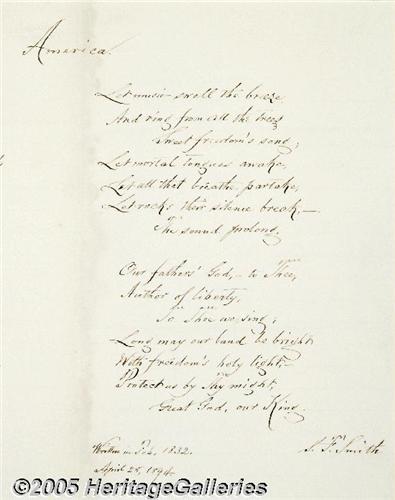 America.
Let music swell the breeze,
And ring from all the trees
Sweet freedom's song;
Let mortal tongues awake,
Let all that breathe partake,
Let rocks their silence break,—
The sound prolong.
Our fathers' God,— to Thee,
Author of liberty,
To Thee we sing;
Long may our land be bright
With freedom's holy light;—
Protect us by Thy might,
Great God, our King.
Written in Feb. 1832.
April 25, 1894.
S. F. Smith
©2005 HeritageGalleries